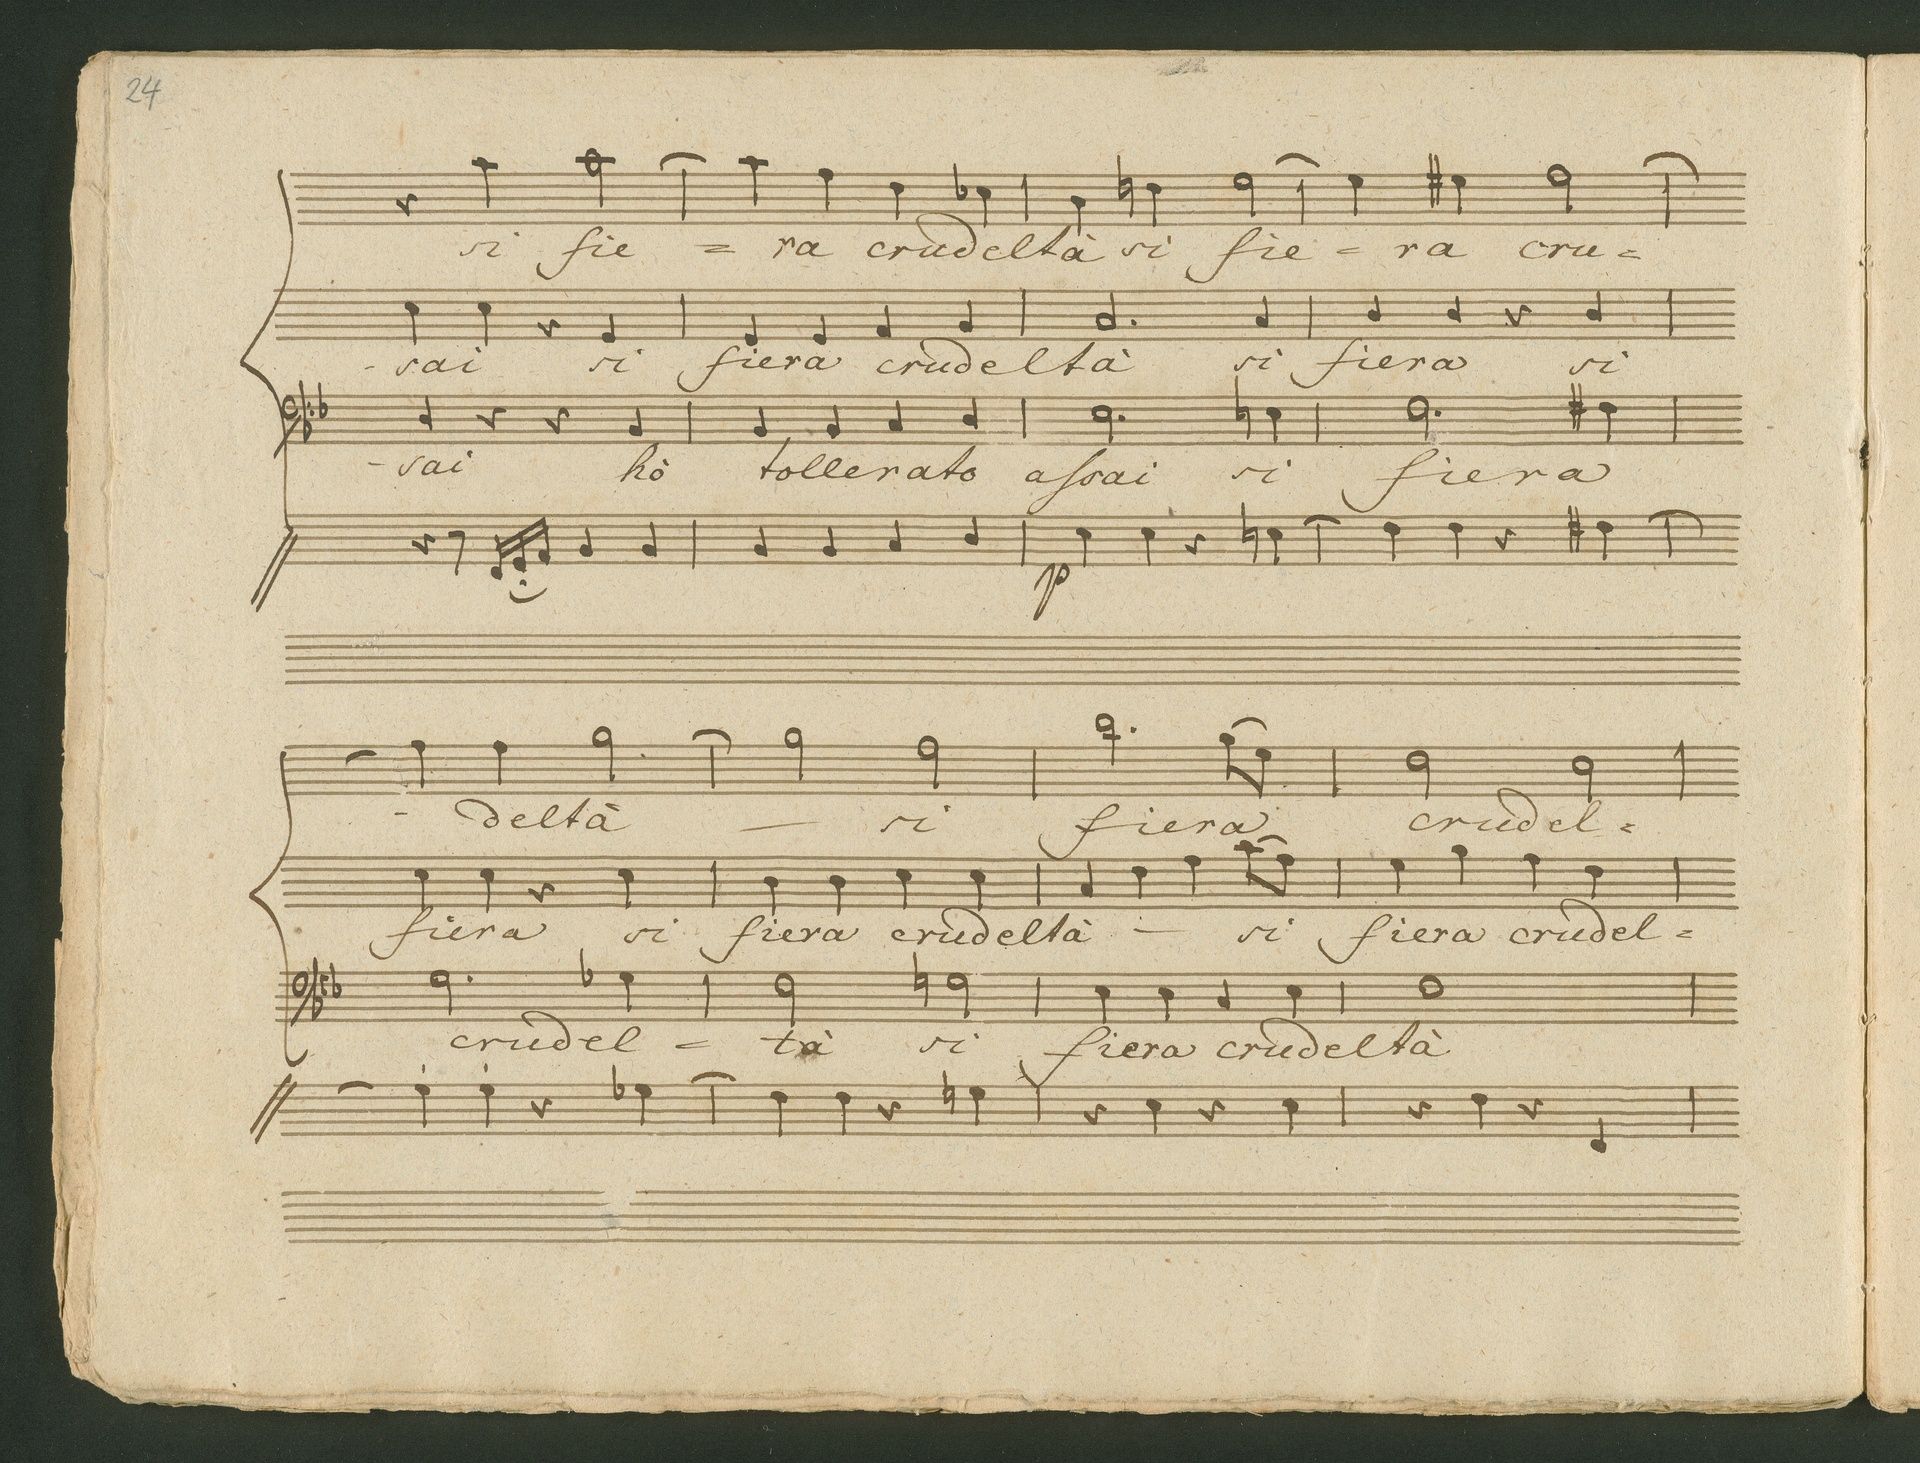 24
si fie = ra crudeltà si fie = ra cru =
- sai si fiera crudeltà si fiera si
- sai hò tollerato assai si fiera
p
- deltà — si fiera crudel =
fiera si fiera crudeltà — si fiera crudel =
crudel = tà si fiera crudeltà